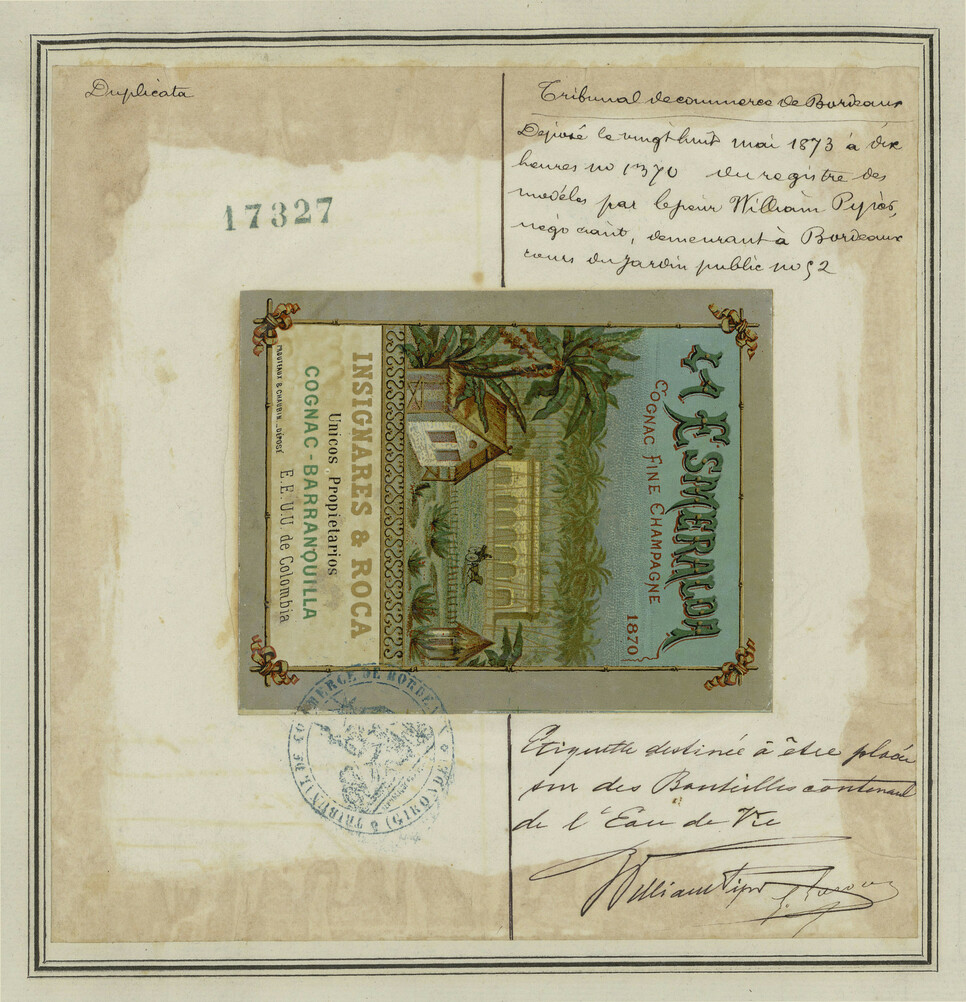 Duplicata
17327
Tribunal de commerce de Bordeaux
Déposé le vingt huit mai 1873 à dix
heures no 1370 du registre des
modèles par le sieur William
négociant, demeurant à Bordeaux
cours du Jardin public no 52
LA ESMERALDA
COGNAC FINE CHAMPAGNE
1870
INSIGNARES & ROCA
Unicos Propietarios
COGNAC - BARRANQUILLA
E.E.U.U. de Colombia
& CHAUBIN _ DÉPOSÉ
TRIBUNAL DE COMMERCE DE BORDEAUX (GIRONDE)
Etiquette destinée à être placée
sur des Bouteilles contenant
de l'Eau de Vie
William